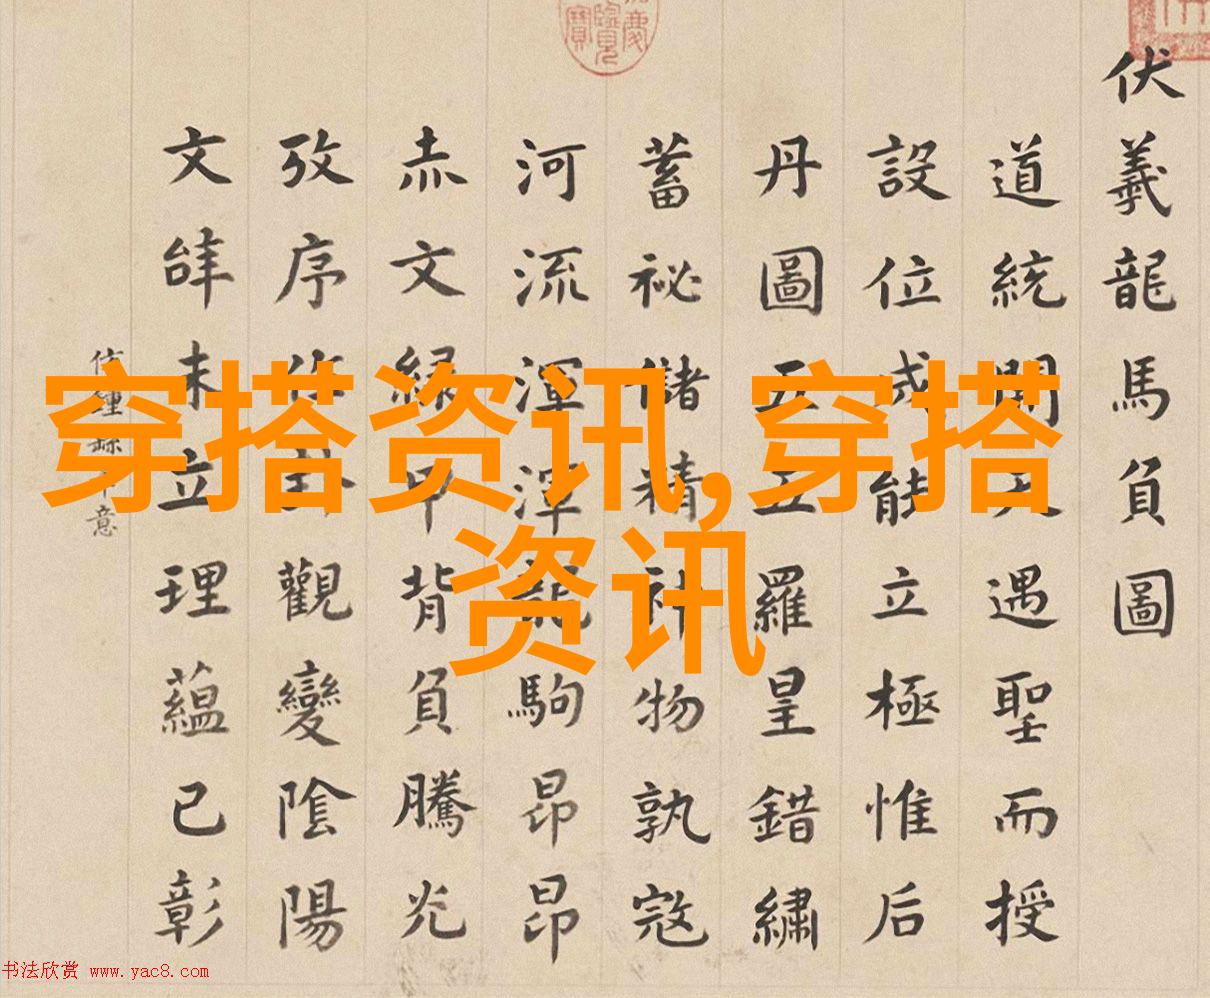 伏羲龍馬負圖
道統開天遇聖而授
設位成能立極惟后
丹圖五羅皇錯繡
蓄祕儲精神物孰寇
河流渾渾龍駒昂昂
赤文緑甲背負騰光
攷序作卦觀變陰陽
文未立理蘊已彰
仿鍾繇意
穿搭资讯,穿搭
资讯
书法欣赏 www.yac8.com